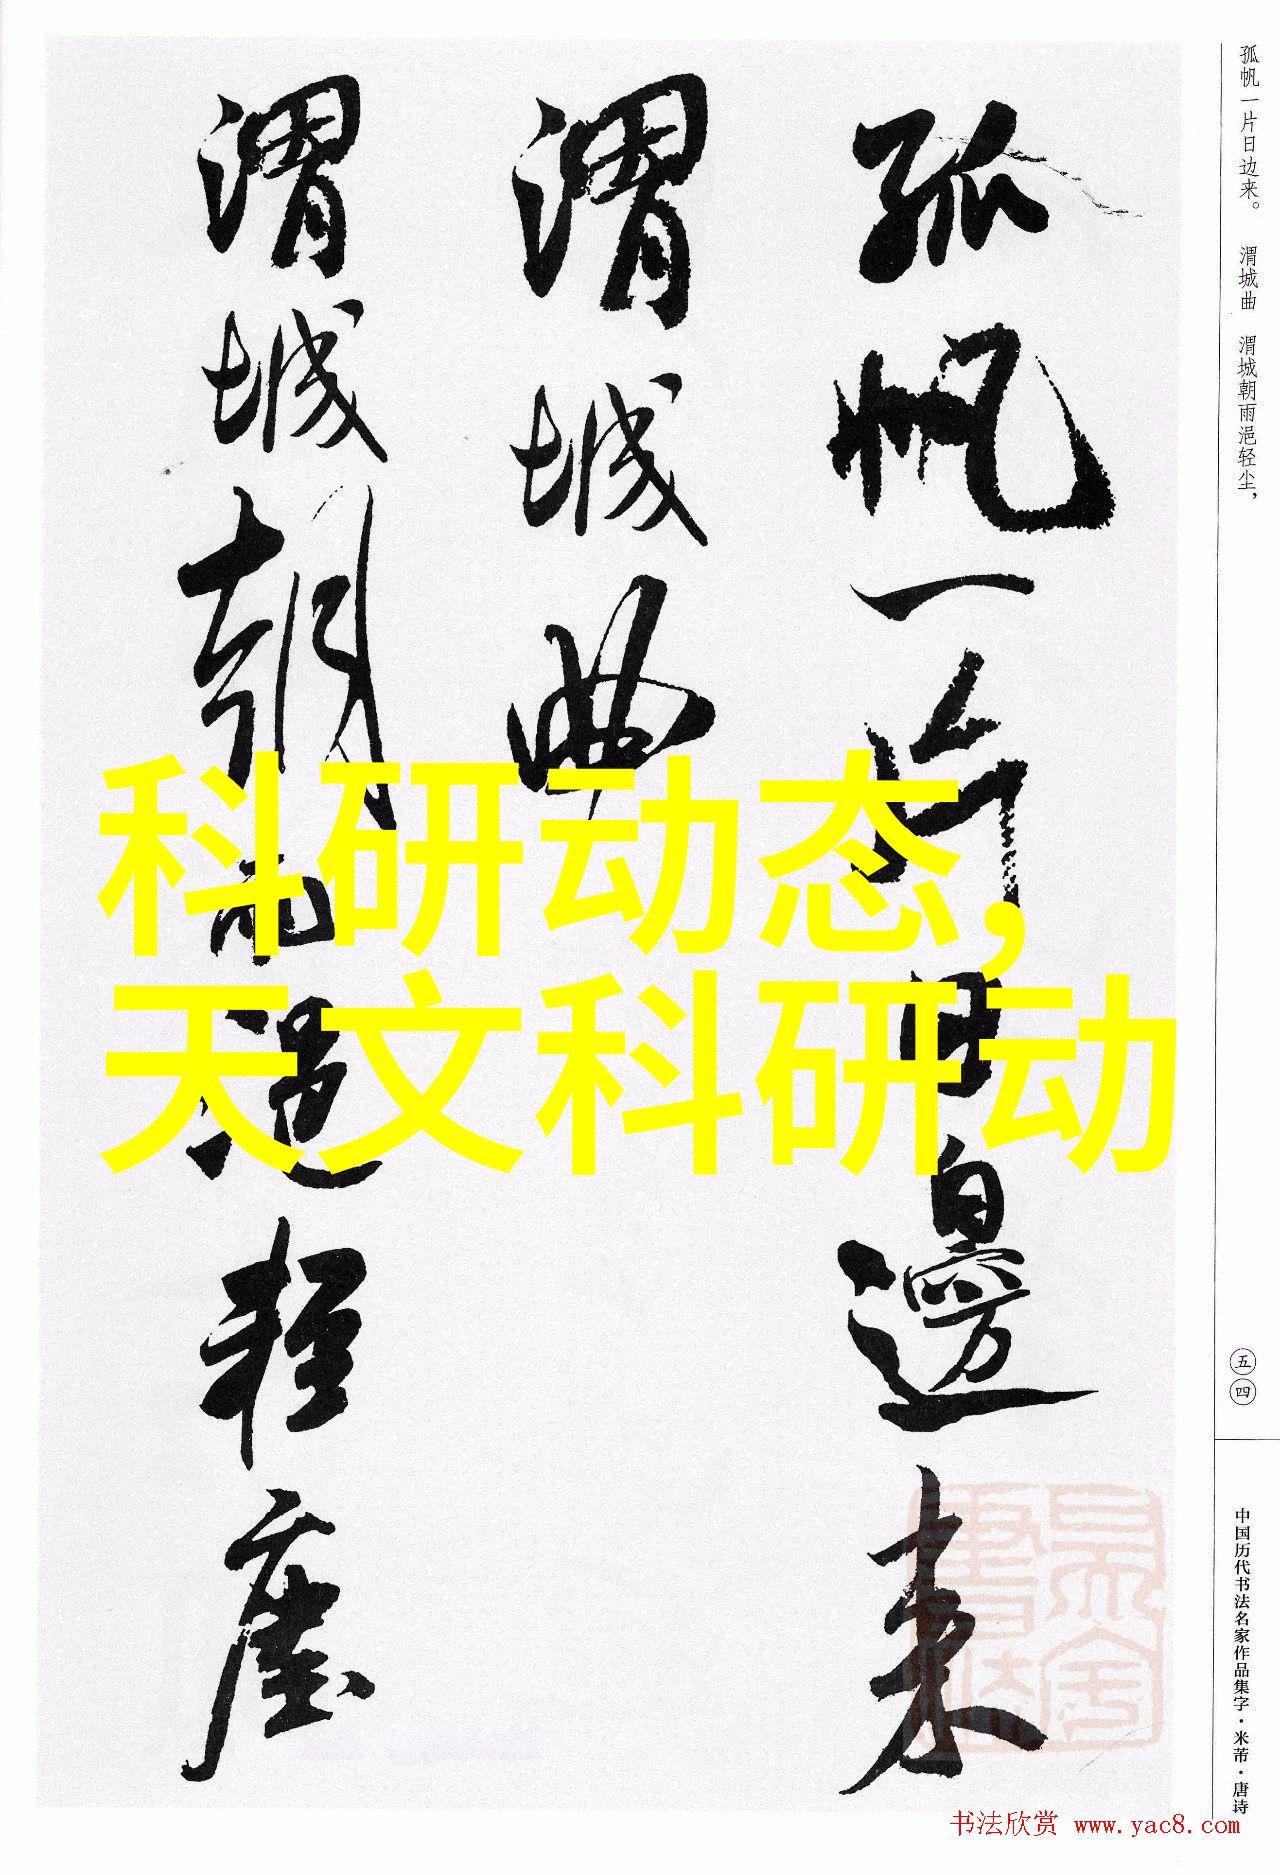 孤帆一片日边来。 渭城曲 渭城朝雨浥轻尘，
五四
中国历代书法名家作品集字·米芾·唐诗
孤帆一片日邊来
渭城曲
渭城朝雨浥轻塵
科研动态，
天文科研动
书法欣赏 www.yac8.com